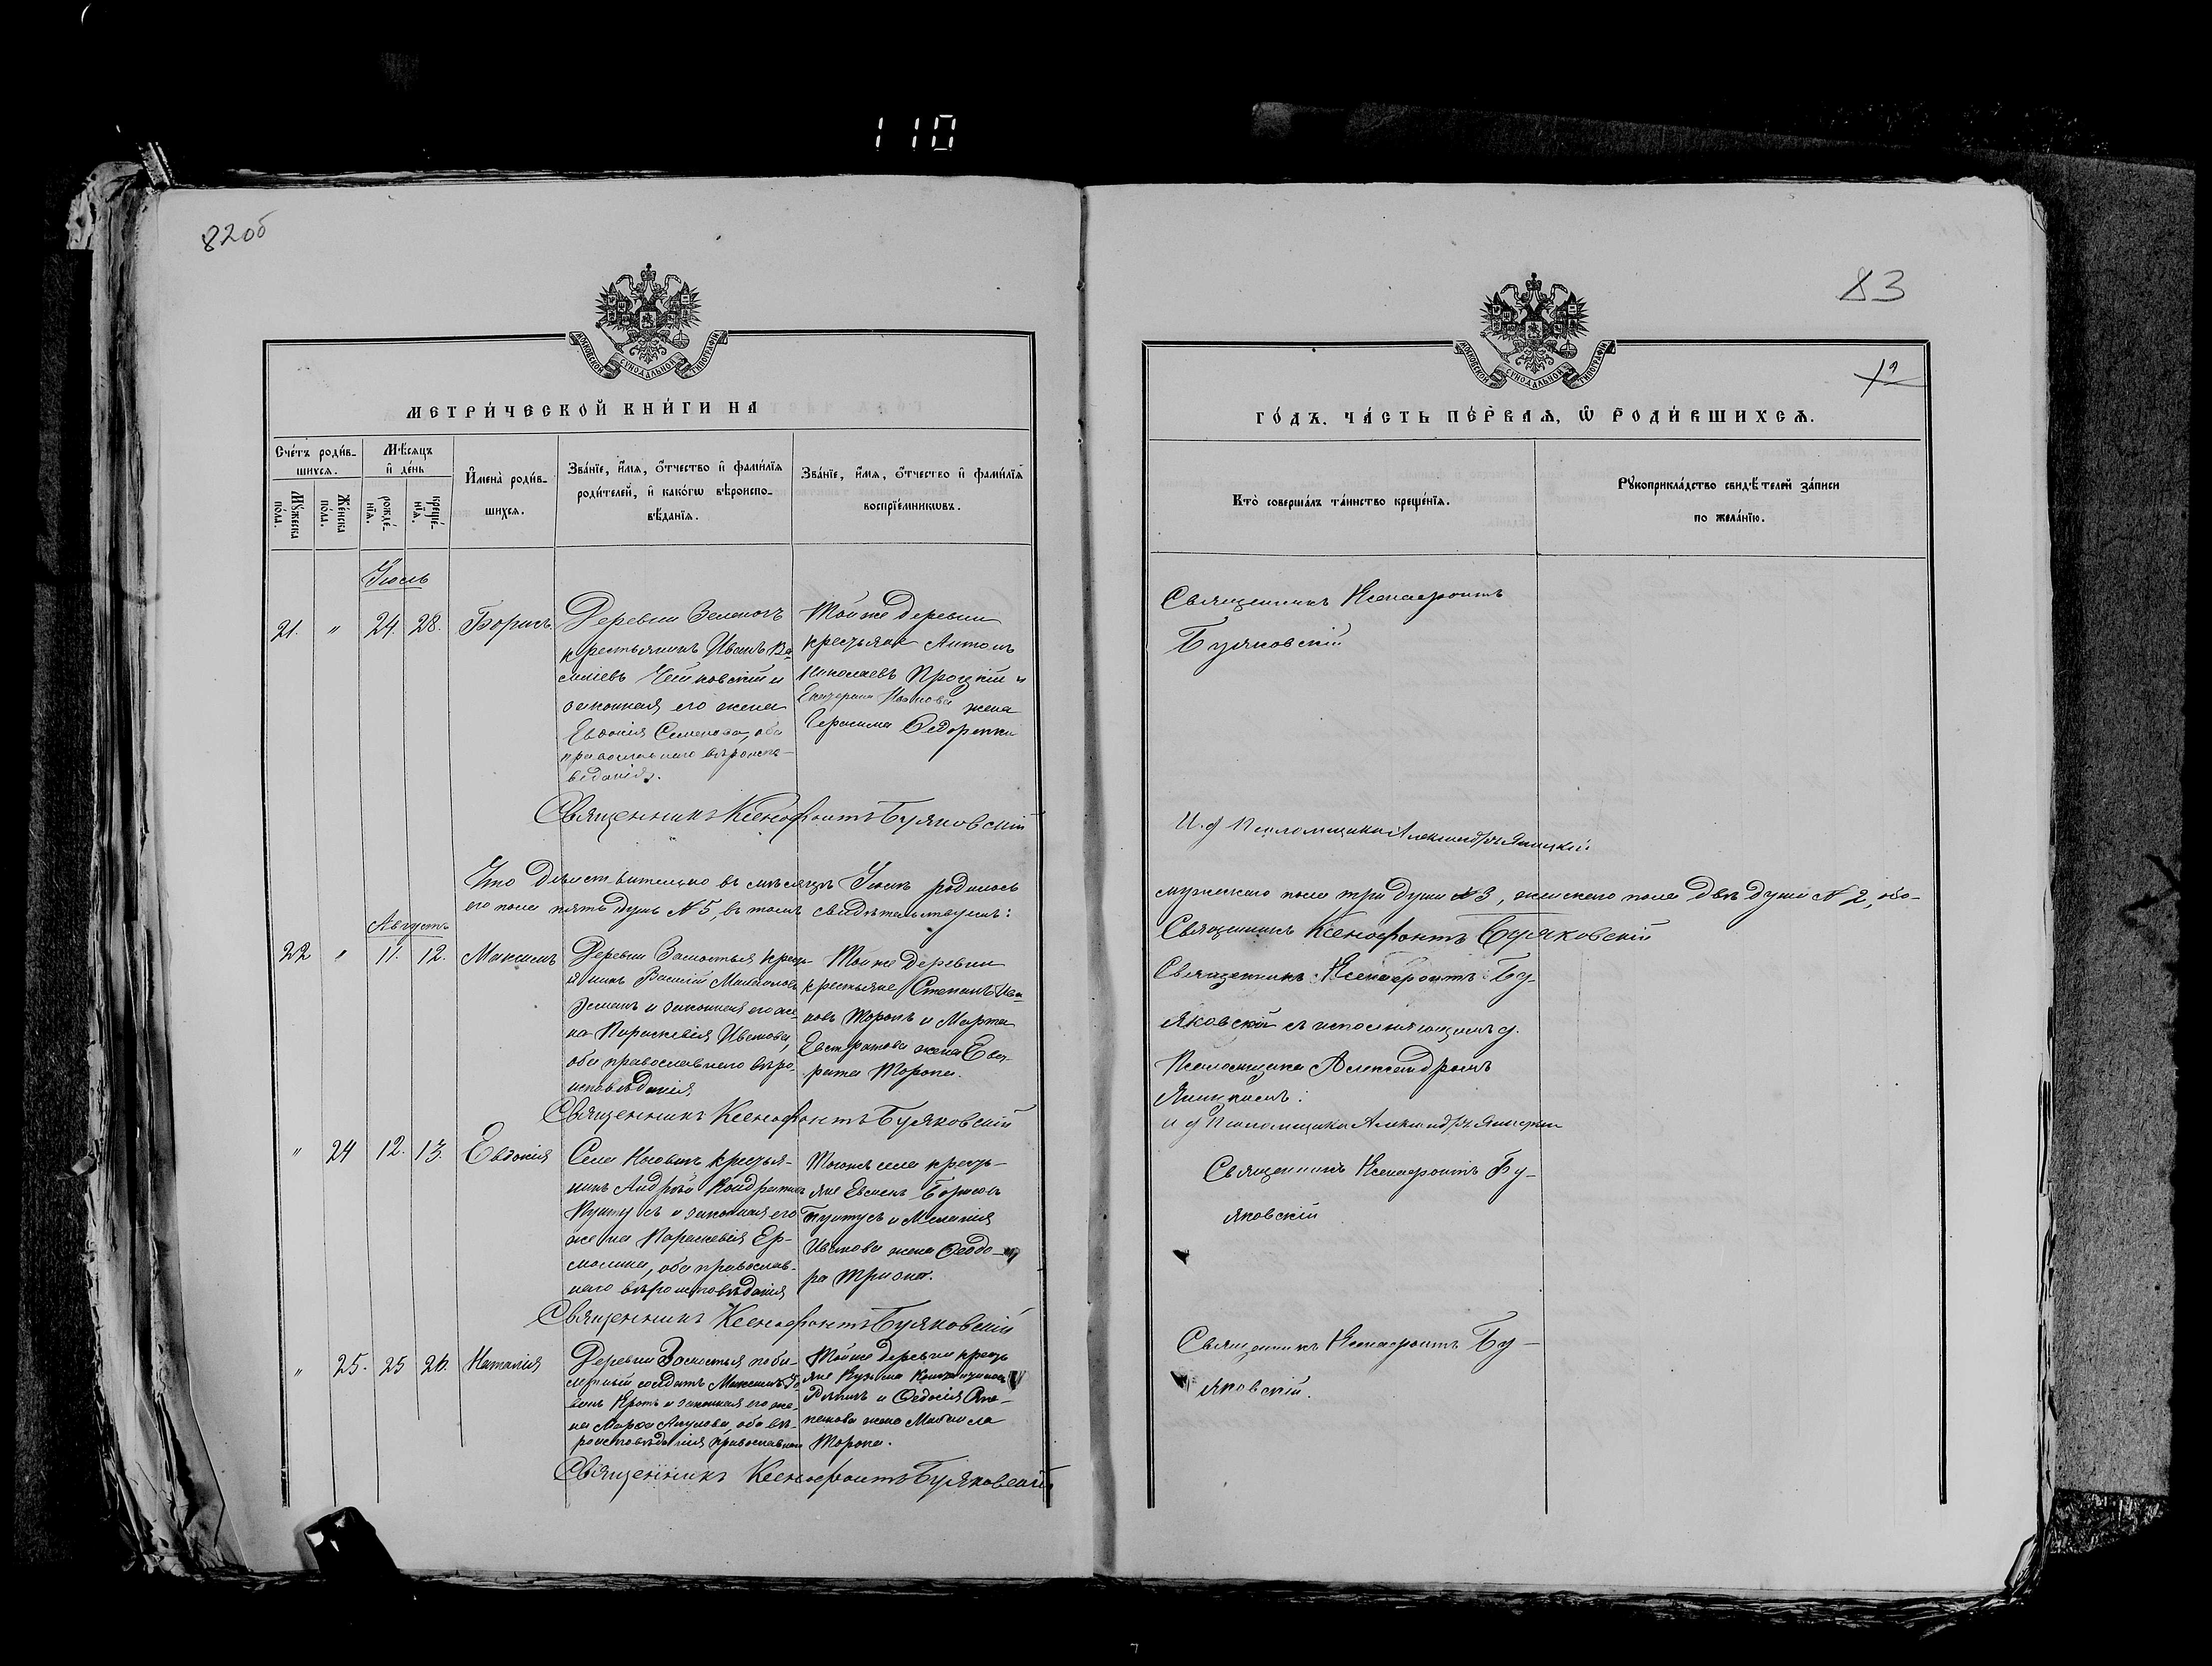 110
82об
83
12
МОСКОВСКОЙ СѴНОДАЛЬНОЙ ТИПОГРАФІИ
МЕТРИ́ЧЕСКОЙ КНИ́ГИ НА
Сче́тъ роди́в-
шихсѧ.
Мѣ́сѧцъ
и҆ де́нь
Мꙋ́жеска
пола.
Же́нска
по́ла.
рожде́-
нїѧ.
креще́-
нїѧ.
И҆мена̀ роди́в-
шихсѧ.
Зва́нїе, и҆́мѧ, ѻ҆́тчество и҆ фами́лїѧ
роди́телей, и҆ како́гѡ вѣроиспо-
вѣ́данїѧ.
Зва́нїе, и҆́мѧ, ѻ҆́тчество и҆ фами́лїѧ
воспрїе́мникѡвъ.
Іюль
21. " 24. 28. Борисъ
Деревни Зеленочъ
крестьянинъ Иванъ Ва-
силіевъ Чейковскій и
законная его жена
Евдокія Семенова, оба
православнаго вѣроиспо-
вѣданія.
Той же деревни
крестьяне Антонъ
Николаевъ Процкій и
Екатерина жена
Герасима Ѳедоренки
Священникъ Ксенофонтъ Буяковскій
Что дѣйствительно въ мѣсяцѣ Іюлѣ родилось
его пола пять душъ № 5, въ томъ свидѣтельствуемъ:
Августъ
22 " 11. 12. Максимъ
Деревни Замостья крестья-
янинъ Василій Михайловъ
и законная его же-
на Параскевія Иванова,
оба православнаго вѣро-
исповѣданія
Той же деревни
крестьяне Степанъ Ива-
новъ Торопъ и Марта
Евстратова жена Евст-
рата Торопа.
Священникъ Ксенофонтъ Буяковскій
" 24 12. 13. Евдокія
Села крестья-
нинъ Андрей Кондратіевъ
Пунтусъ и законная его
жена Параскевія Ер-
молина, оба православ-
наго вѣроисповѣданія
Тогожъ села кресть-
яне Евсней Борисовъ
Пунтусъ и Меланія
Иванова жена Ѳеодо-
ра
Священникъ Ксенофонтъ Буяковскій
" 25. 25 26. Наталія
Деревни Замостья
солдатъ Максимъ
Кротъ и законная его же-
на оба вѣ-
роисповѣданія православнаго
Той же деревни кресть
яне Кузьма Константиновъ
и Ѳедосія
жена Михаила
Торопа.
Священникъ Ксенофонтъ Буяковскій
МОСКОВСКОЙ СѴНОДАЛЬНОЙ ТИПОГРАФІИ
ГО́ДЪ, ЧА́СТЬ ПЕ́РВАѦ, Ѡ҆ РОДИ́ВШИХСѦ.
Кто̀ соверша́лъ та́инство креще́нїѧ.
Рꙋкоприкла́дство свидѣ́телей за́писи
по жела́нїю.
Священникъ Ксенофонтъ
Буяковскій
И. д Псаломщика Александръ Яницкій
мужескаго пола три души № 3, женскаго пола двѣ души № 2, обо-
Священникъ Ксенофонтъ Буяковскій
Священникъ Ксенофонтъ Бу-
яковскій съ исполняющимъ д.
Псаломщика Александромъ
Яницкимъ:
И д Псаломщика Александръ Яницкій
Священникъ Ксенофонтъ Бу-
яковскій
Священникъ Ксенофонтъ Бу-
яковскій.